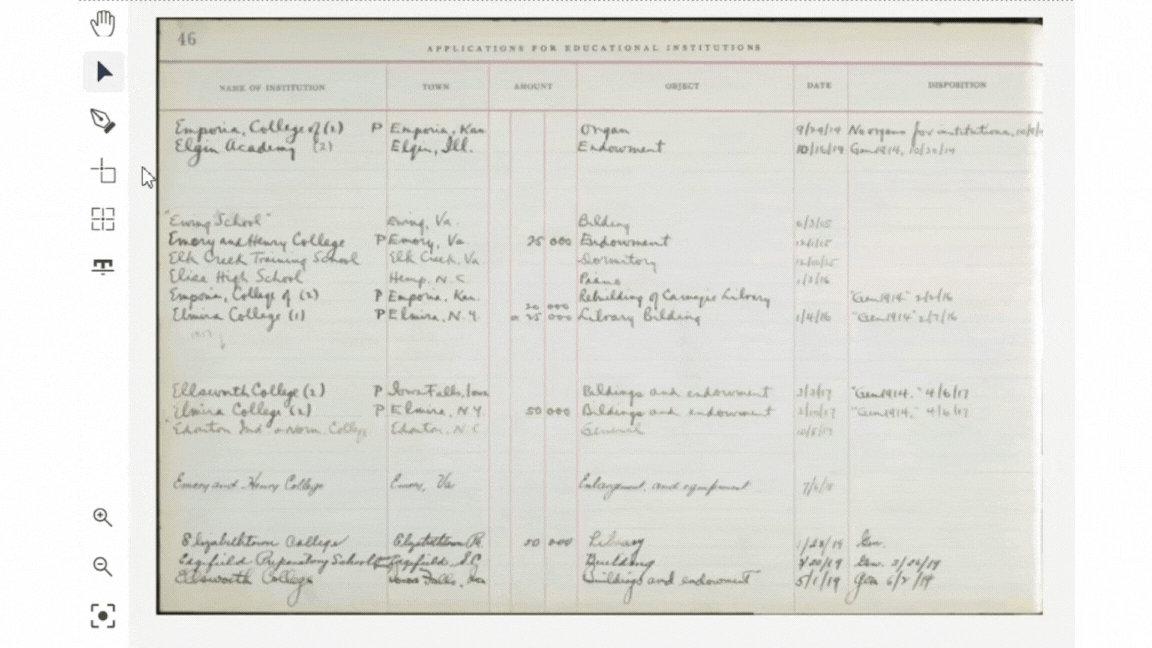 46
APPLICATIONS FOR EDUCATIONAL INSTITUTIONS
NAME OF INSTITUTION TOWN AMOUNT OBJECT DATE DISPOSITION
Emporia, College of (2) P Emporia, Kan. Organ 9/29/14 No organs for institutions, 10/9/1
Elgin Academy (2) Elgin, Ill. Endowment 10/16/14 Gen 1914, 10/20/14
"Ewing School" Ewing, Va. Bilding 6/3/15
Emory and Henry College P Emory, Va. 25 000 Endowment
Elk Creek Training School Elk Creek, Va. Dormitory
Elise High School Hemp, N.C. Piano 1/3/16
Emporia, College of (2) P Emporia, Kan. 20 000 Rebilding of Carnegie Library "Gen 1914" 2/2/16
Elmira College (1) P Elmira, N.Y. 25 000 Library Bilding 1/4/16 "Gen 1914" 2/7/16
Ellsworth College (2) P Iowa Falls, Iowa Bildings and endowment 3/3/17 "Gen 1914." 4/6/17
Elmira College (2) P Elmira, N.Y. 50 000 Bildings and endowment "Gen 1914." 4/6/17
Edenton Ind. & Norm. College Edenton, N.C. General
Emory and Henry College Emory, Va Enlargement, and equipment
Elizabethtown College Elizabethtown Pa. 50 000 Library 1/28/19 Gen.
Edgefield Preparatory School Edgefield, S.C. Building Gen. 3/26/19
Ellsworth College Iowa Falls, Ioa Buildings and endowment 5/1/19 Gen 6/2/19